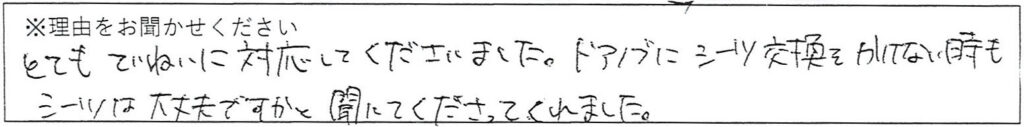 ※理由をお聞かせください
とても ていねいに 対応して くださいました。ドアノブに シーツ交換を かけてない時も
シーツは 大丈夫ですかと 聞いてくださってくれました。